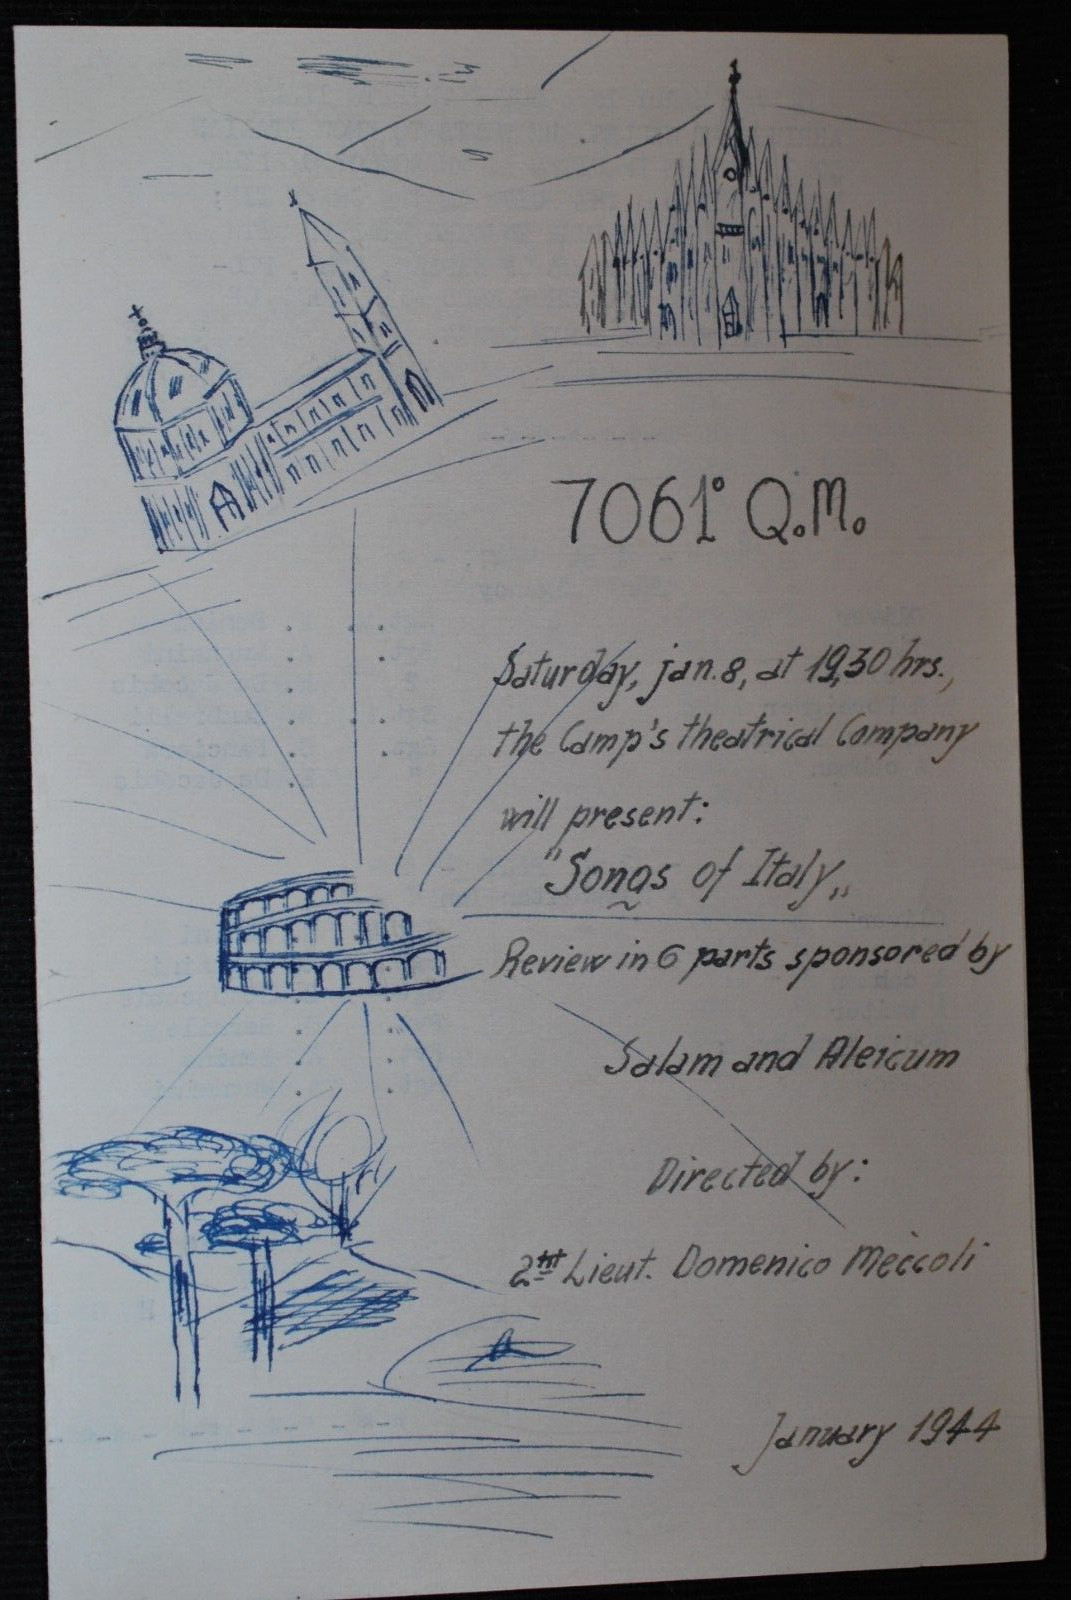 7061° Q.M.
Saturday, jan. 8, at 19,30 hrs.,
the Camp's theatrical Company
will present:
"Songs of Italy„
Review in 6 parts sponsored by
Salam and Aleicum
Directed by:
2nt Lieut. Domenico Meccoli
January 1944